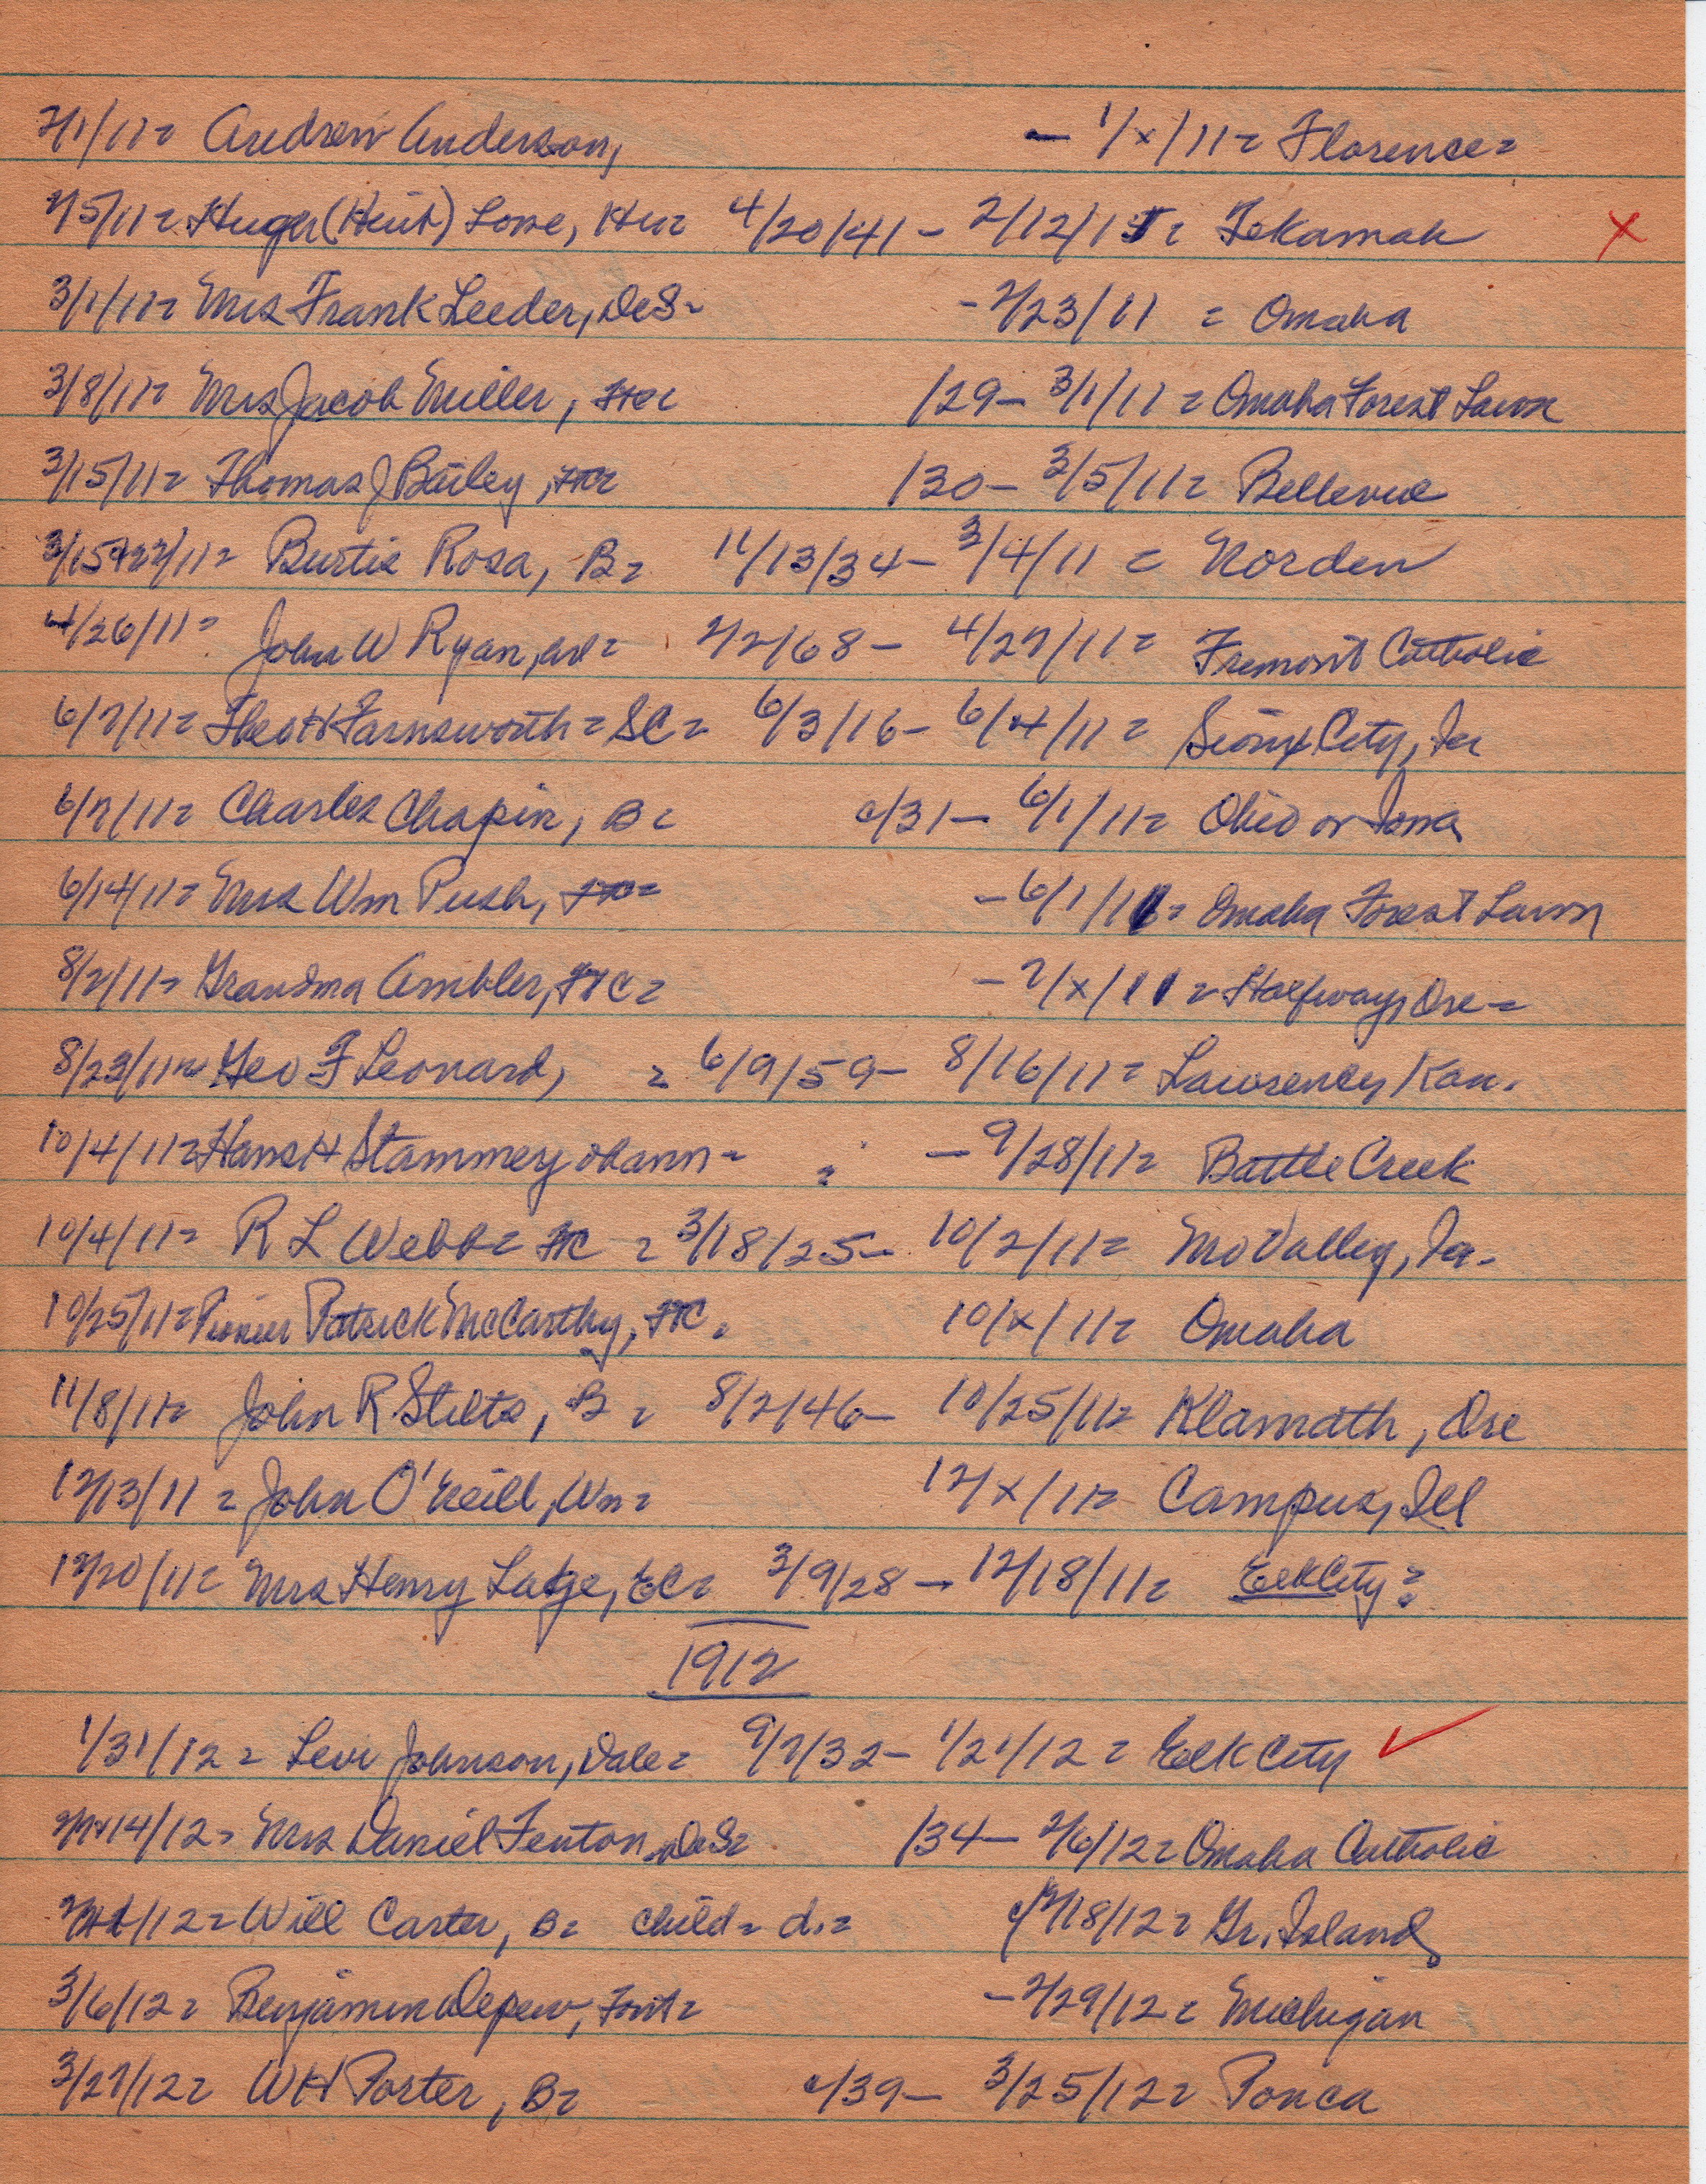 2/1/11= Andrew Anderson, - 1/x/11= Florence=
2/5/11= Huger (Heirb) Lowe, Her= 4/20/41- 2/12/11= Tekamah X
3/1/11= Mrs Frank Leeder, DeS= -2/23/11 = Omaha
3/8/11= Mrs Jacob Miller, FtC= /29- 3/1/11= Omaha Forest Lawn
3/15/11= Thomas J Bailey, FtC= /30- 3/5/11= Bellevue
3/15+22/11= Burtis Rosa, B= 11/13/34- 3/4/11 = Norden
4/26/11= John W Ryan, = 2/2/68- 4/27/11= Fremont Catholic
6/7/11= Theo H Farnsworth= SC= 6/3/16- 6/4/11= Sioux City, Ia
6/7/11= Charles Chapin, B= c/31- 6/1/11= Ohio or Iowa
6/14/11= Mrs Wm Push, FtC= -6/1/11= Omaha Forest Lawn
8/2/11= Grandma Ambler, FtC= -7/x/11= Halfway, Ore=
8/23/11= Geo F Leonard, = 6/9/59- 8/16/11= Lawrence, Kan.
10/4/11= Hans H Stammeyohann= = -9/28/11= Battle Creek
10/4/11= R L Webb= FtC = 3/18/25- 10/2/11= Mo Valley, Ia.
10/25/11= Pioneer Patrick McCarthy, FtC= 10/x/11= Omaha
11/8/11= John R. Stilts, B= 8/2/46- 10/25/11= Klamath, Ore
12/13/11= John O'Neill, Wn= 12/x/11= Campus, Ill
12/20/11= Mrs Henry Latje, EC= 3/9/28- 12/18/11= Elk City=
1912
1/31/12= Levi Johnson, Vale= 9/7/32- 1/21/12= Elk City ✓
2/7+14/12= Mrs Daniel Fenton, DeS= /34- 2/6/12= Omaha Catholic
/12= Will Carter, B= child= d.= 2/18/12= Gr. Island
3/6/12= Benjamin Depew, Font= -2/29/12= Michigan
3/27/12= WH Porter, B= c/39- 3/25/12= Ponca